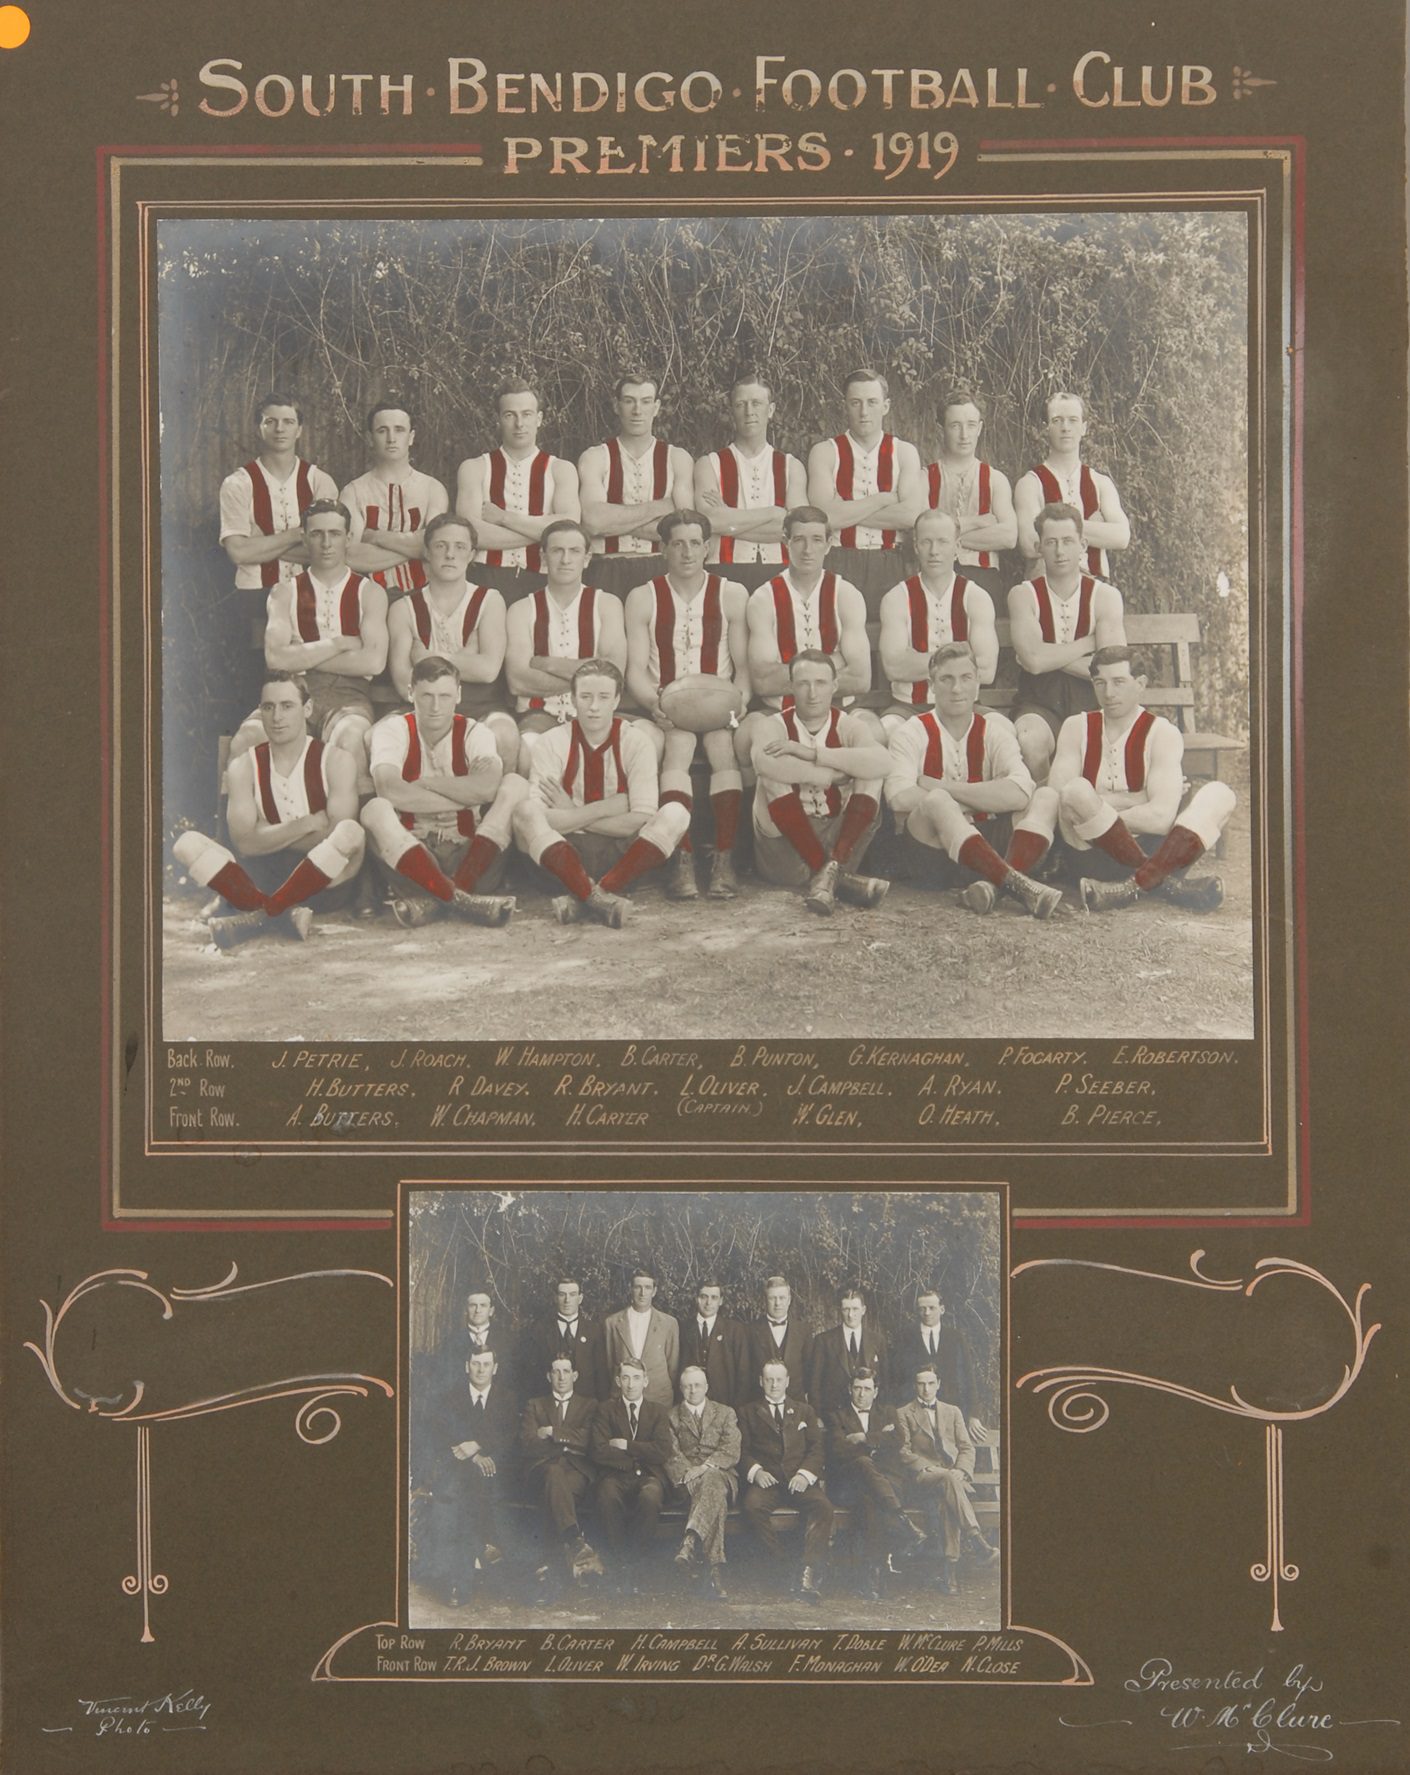 SOUTH · BENDIGO · FOOTBALL · CLUB
PREMIERS · 1919
Back Row. J. PETRIE, J. ROACH. W. HAMPTON, B. CARTER, B. PUNTON, G. KERNAGHAN, P. FOGARTY. E. ROBERTSON.
2ND Row H. BUTTERS, R DAVEY. R. BRYANT. L. OLIVER. J. CAMPBELL. A. RYAN. P. SEEBER.
(CAPTAIN)
Front Row. A. BUTTERS. W. CHAPMAN. H. CARTER W. GLEN, O. HEATH, B. PIERCE,
TOP ROW R. BRYANT B. CARTER H. CAMPBELL A. SULLIVAN T. DOBLE W. McCLURE P. MILLS
FRONT ROW T.R.J. BROWN L. OLIVER W. IRVING DR G. WALSH F. MONAGHAN W. O'DEA N. CLOSE
Vincent Kelly
Photo
Presented by
W. McClure